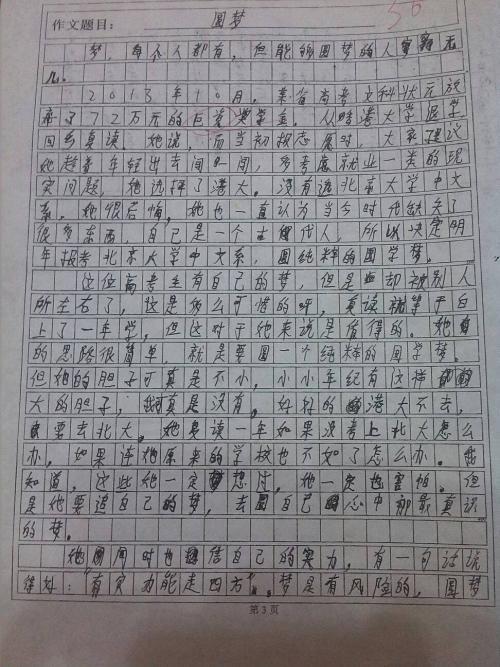 作文题目： 圆梦
50
梦，每个人都有，但能够圆梦的人寥寥无
几。
2013年10月，某省高考文科状元放
弃了72万元的巨资奖学金。从香港大学退学，
回乡复读。她说，而当初报志愿时，大家建议
她趁着年轻出去闯一闯，多考虑就业一类的现
实问题，她选择了港大。没有选北京大学中文
系，她很后悔。她也一直认为当今时代缺失了
很多东西，自己是一个古代人，所以决定明
年报考北京大学中文系，圆纯粹的国学梦。
这位高考生有自己的梦，但是却被别人
所左右了，这是多么可惜的呀，复读就等于白
上了一年学，但这对于她来说是值得的。她
的思路很简单，就是要圆一个纯粹的国学梦。
但她的胆子可真是不小，小小年纪有这样
大的胆子，我可真是没有，好好的港大不去，
要去北大。她复读一年如果没考上北大怎么
办，如果连她原来的学校也不如了怎么办。我
知道，这些她一定想过，她一定也害怕。但
是她要追自己的梦，去圆自己心中那最真诚
的梦。
她同时也相信自己的实力，有一句话说
得好：“有实力能走四方”。梦是有风险的，圆梦
第3页